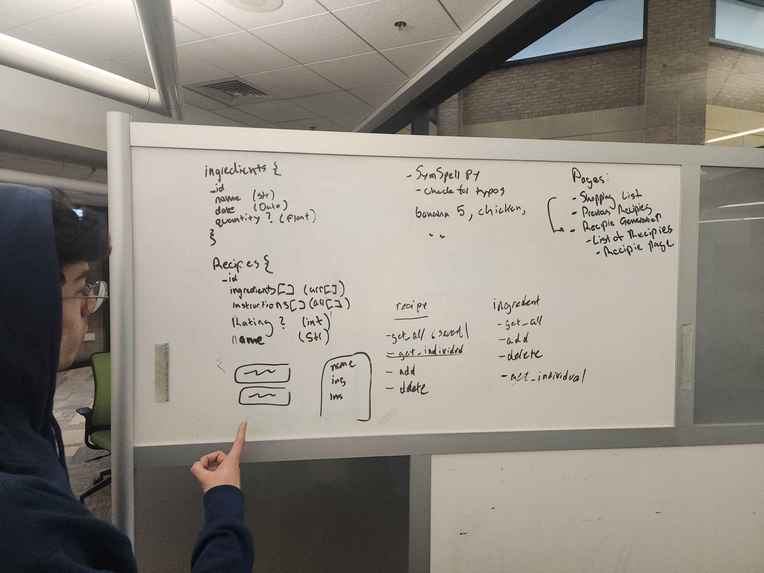 ingredients {
_id
name (str)
date (Date)
quantity ? (float)
}
Recipes {
_id
ingredients[] (arr[])
instructions[] (arr[])
Rating ? (int)
name (str)
name
ing
ins
- SymSpell Py
- check for typos
banana 5, chicken,
recipe
- get_all (saved)
- get_individual
- add
- delete
ingredient
- get_all
- add
- delete
- get_individual
Pages:
- Shopping List
- Previous Recipies
- Recipie Generation
- List of Recipies
- Recipie Page